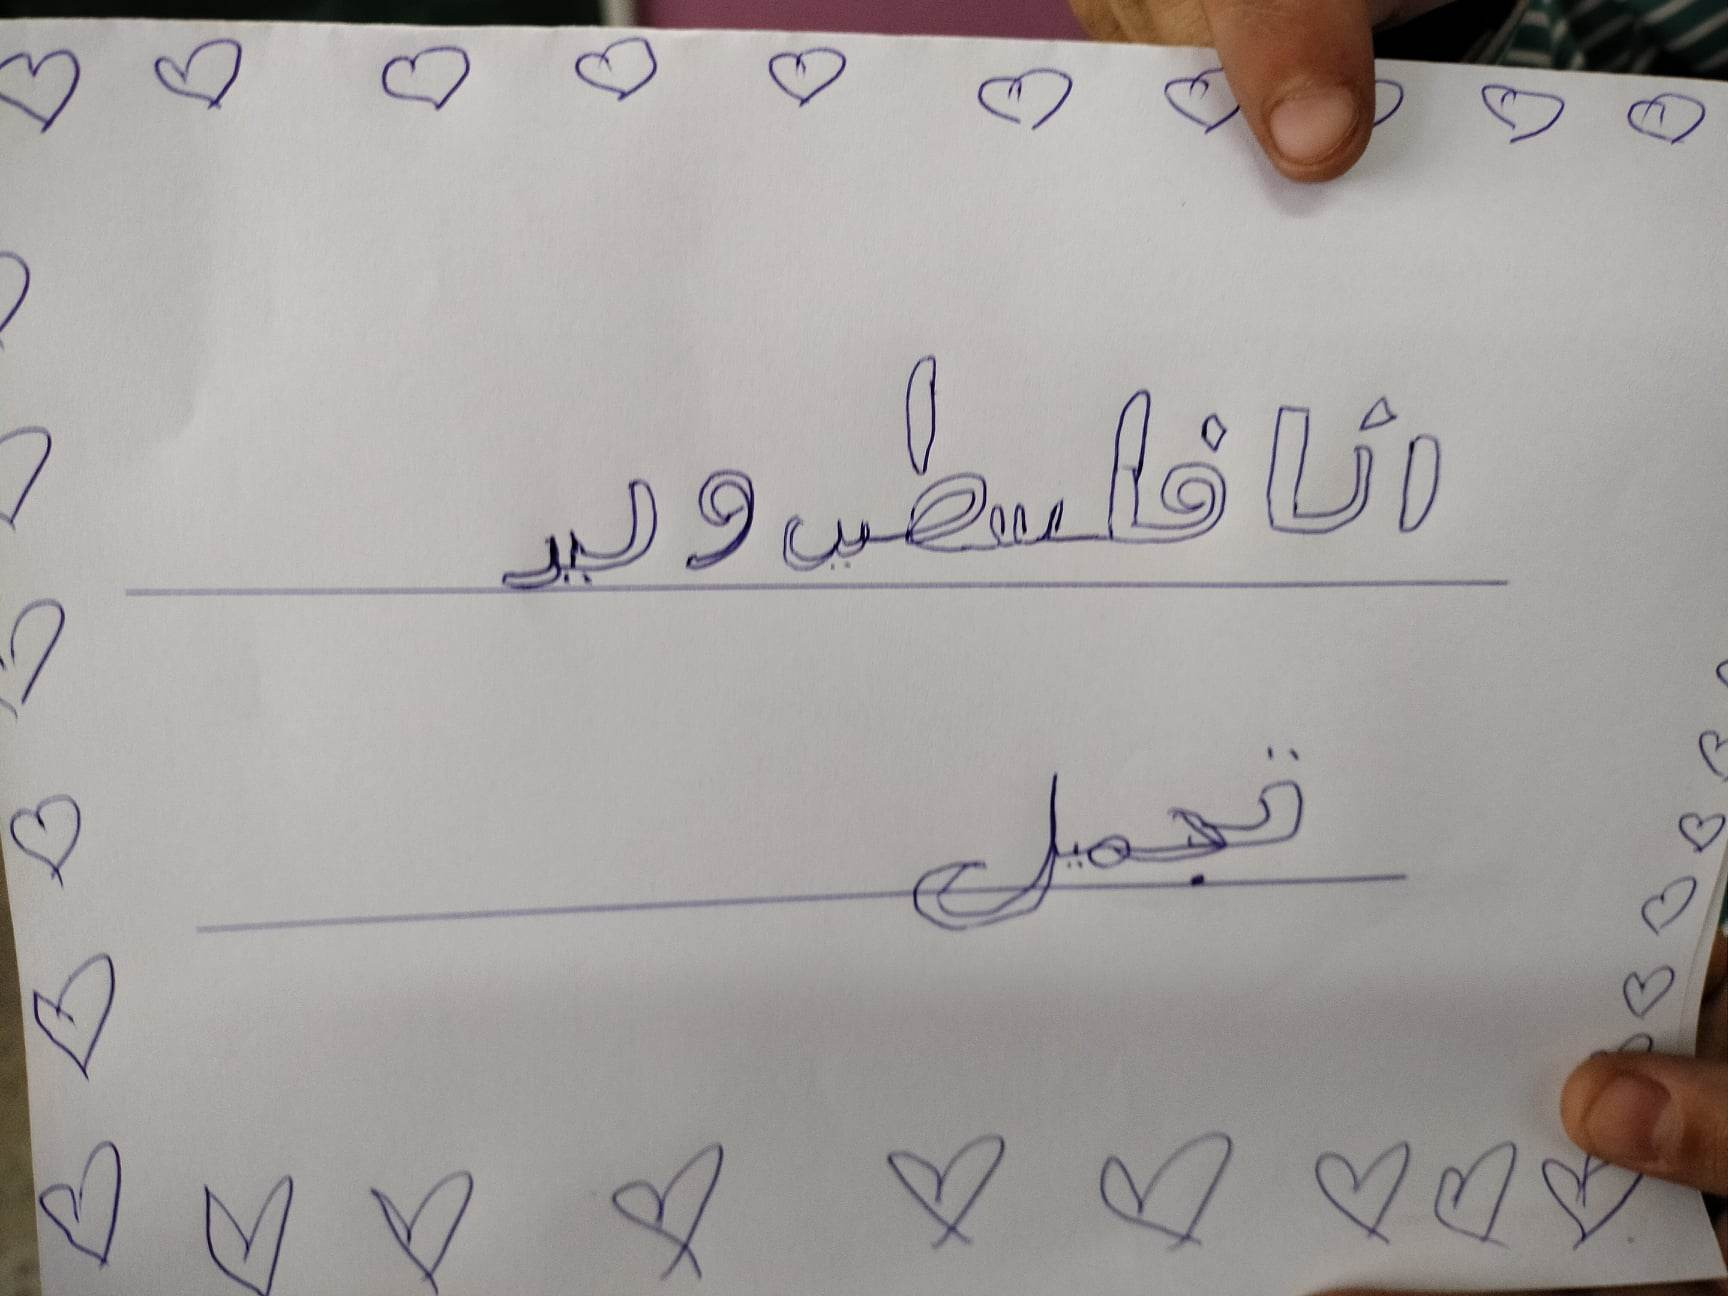 انا فلسطين و ليد
تجميل